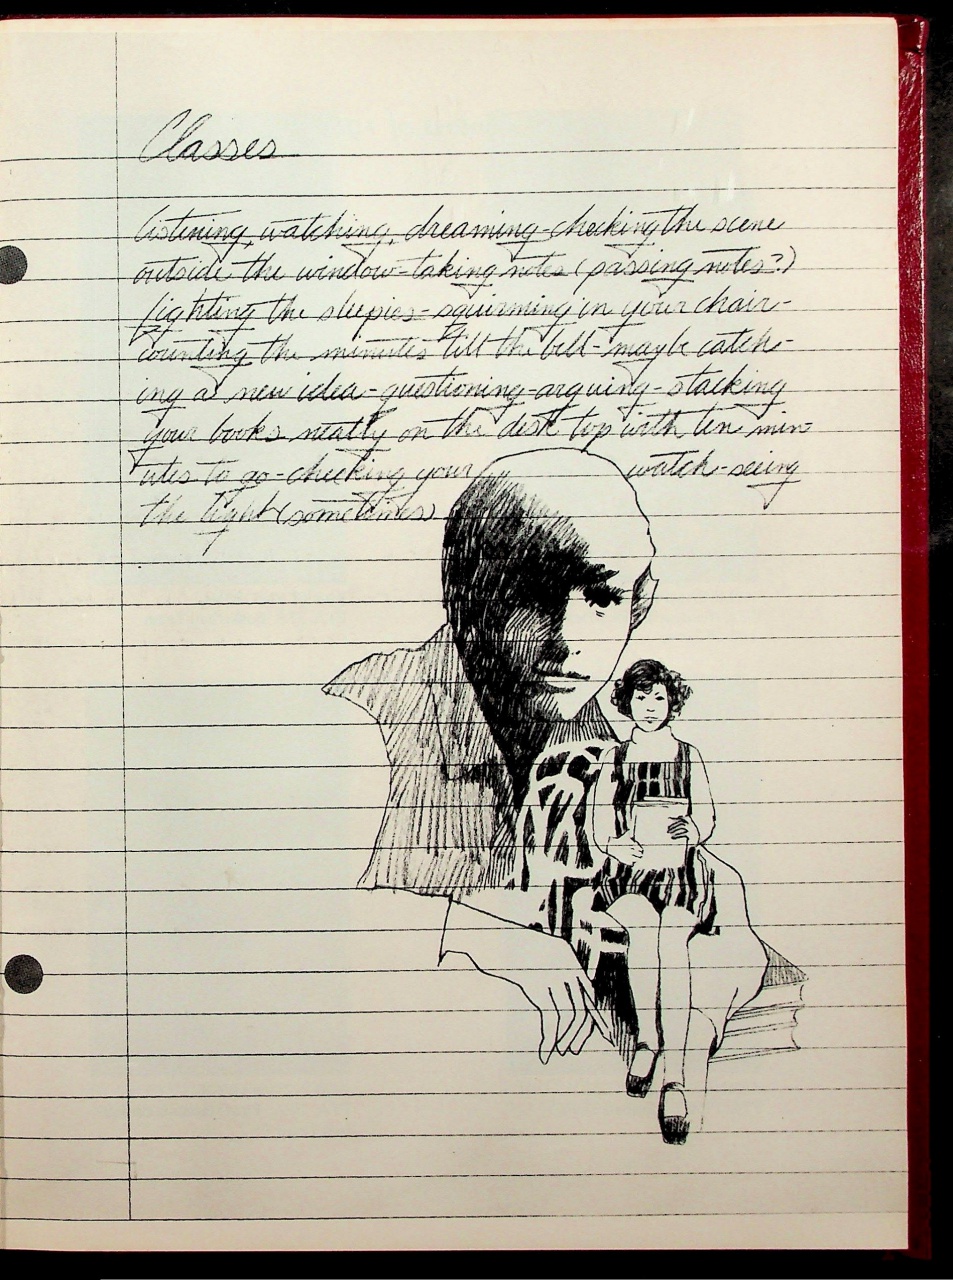 Classes
listening, watching, dreaming-checking the scene
outside the window-taking notes (passing notes?)
fighting the sleepies-squirming in your chair-
counting the minutes till the bell-maybe catch-
ing a new idea-questioning-arguing-stacking
your books neatly on the desk top with ten min-
utes to go-checking your watch-seeing
the light (sometimes)